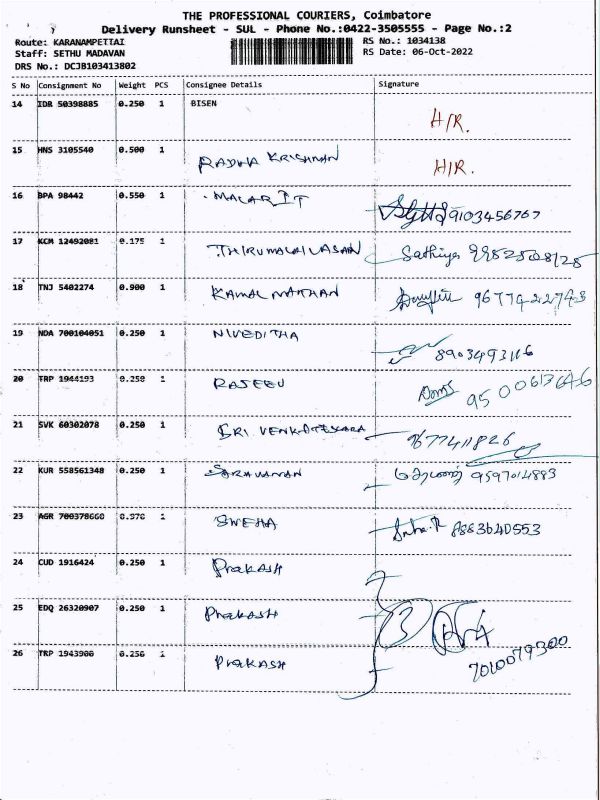 THE PROFESSIONAL COURIERS, Coimbatore
Delivery Runsheet - SUL - Phone No.:0422-3505555 - Page No.:2
Route: KARANAMPETTAI RS No.: 1034138
Staff: SETHU MADAVAN RS Date: 06-Oct-2022
DRS No.: DCJB103413802
S No Consignment No Weight PCS Consignee Details Signature
14 IDR 50398885 0.250 1 BISEN H/R.
15 HNS 3105540 0.500 1 RADHA KRISHNAN H/R.
16 BPA 98442 0.550 1 MALAR IT 9103456767
17 KCM 12492081 0.175 1 THIRUMALAI VASAN Sathiya
18 TNJ 5402274 0.900 1 KAMAL NATHAN 9677422743
19 NDA 700104051 0.250 1 NIVEDITHA 8903493116
20 TRP 1944193 0.250 1 RAJEEV 9500613646
21 SVK 60302078 0.250 1 SRI VENKATESWARA 9677411826
22 KUR 558561348 0.250 1 SARAVANAN 9597014883
23 AGR 700378660 0.370 1 SNEHA 8883640553
24 CUD 1916424 0.250 1 PRAKASH
25 EDQ 26320907 0.250 1 PRAKASH 3
26 TRP 1943900 0.250 1 PRAKASH 7010079300